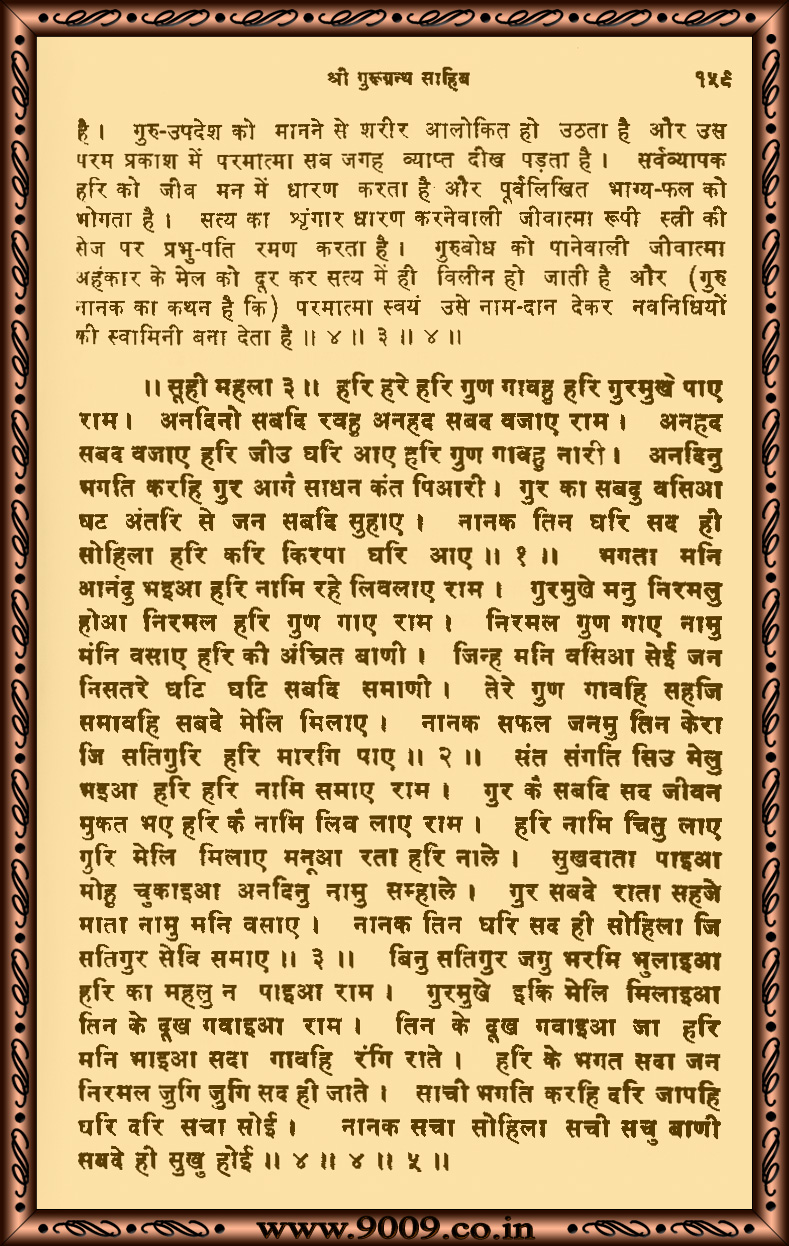 श्री गुरुग्रन्थ साहिब १५९
है। गुरु-उपदेश को मानने से शरीर आलोकित हो उठता है और उस
परम प्रकाश में परमात्मा सब जगह व्याप्त दीख पड़ता है। सर्वव्यापक
हरि को जीव मन में धारण करता है और पूर्वलिखित भाग्य-फल को
भोगता है। सत्य का शृंगार धारण करनेवाली जीवात्मा रूपी स्त्री की
सेज पर प्रभु-पति रमण करता है। गुरुबोध को पानेवाली जीवात्मा
अहंकार के मेल को दूर कर सत्य में ही विलीन हो जाती है और (गुरु
नानक का कथन है कि) परमात्मा स्वयं उसे नाम-दान देकर नवनिधियों
की स्वामिनी बना देता है॥ ४॥ ३॥ ४॥
॥ सूही महला ३॥ हरि हरे हरि गुण गावहु हरि गुरमुखे पाए
राम। अनदिनो सबदि रवहु अनहद सबद वजाए राम। अनहद
सबद वजाए हरि जीउ घरि आए हरि गुण गावहु नारी। अनदिनु
भगति करहि गुर आगै साधन कंत पिआरी। गुर का सबदु वसिआ
घट अंतरि से जन सबदि सुहाए। नानक तिन घरि सद ही
सोहिला हरि करि किरपा घरि आए॥ १॥ भगता मनि
आनंदु भइआ हरि नामि रहे लिवलाए राम। गुरमुखे मनु निरमलु
होआ निरमल हरि गुण गाए राम। निरमल गुण गाए नामु
मंनि वसाए हरि की अंम्रित बाणी। जिन्ह मनि वसिआ सेई जन
निसतरे घटि घटि सबदि समाणी। तेरे गुण गावहि सहजि
समावहि सबदे मेलि मिलाए। नानक सफल जनमु तिन केरा
जि सतिगुरि हरि मारगि पाए॥ २॥ संत संगति सिउ मेलु
भइआ हरि हरि नामि समाए राम। गुर कै सबदि सद जीवन
मुकत भए हरि कै नामि लिव लाए राम। हरि नामि चितु लाए
गुरि मेलि मिलाए मनूआ रता हरि नाले। सुखदाता पाइआ
मोहु चुकाइआ अनदिनु नामु सम्हाले। गुर सबदे राता सहजे
माता नामु मनि वसाए। नानक तिन घरि सद ही सोहिला जि
सतिगुर सेवि समाए॥ ३॥ बिनु सतिगुर जगु भरमि भुलाइआ
हरि का महलु न पाइआ राम। गुरमुखे इकि मेलि मिलाइआ
तिन के दूख गवाइआ राम। तिन के दूख गवाइआ जा हरि
मनि भाइआ सदा गावहि रंगि राते। हरि के भगत सदा जन
निरमल जुगि जुगि सद ही जाते। साची भगति करहि दरि जापहि
घरि दरि सचा सोई। नानक सचा सोहिला सची सचु बाणी
सबदे ही सुखु होई॥ ४॥ ४॥ ५॥
www.9009.co.in